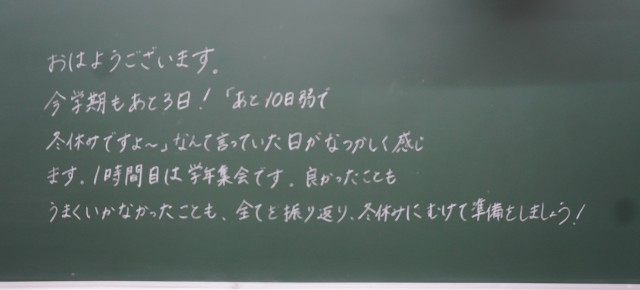 おはようございます。
今学期もあと3日!「あと10日弱で
冬休みですよ〜」なんて言っていた日がなつかしく感じ
ます。1時間目は学年集会です。良かったことも
うまくいかなかったことも、全てを振り返り、冬休みにむけて準備をしましょう!